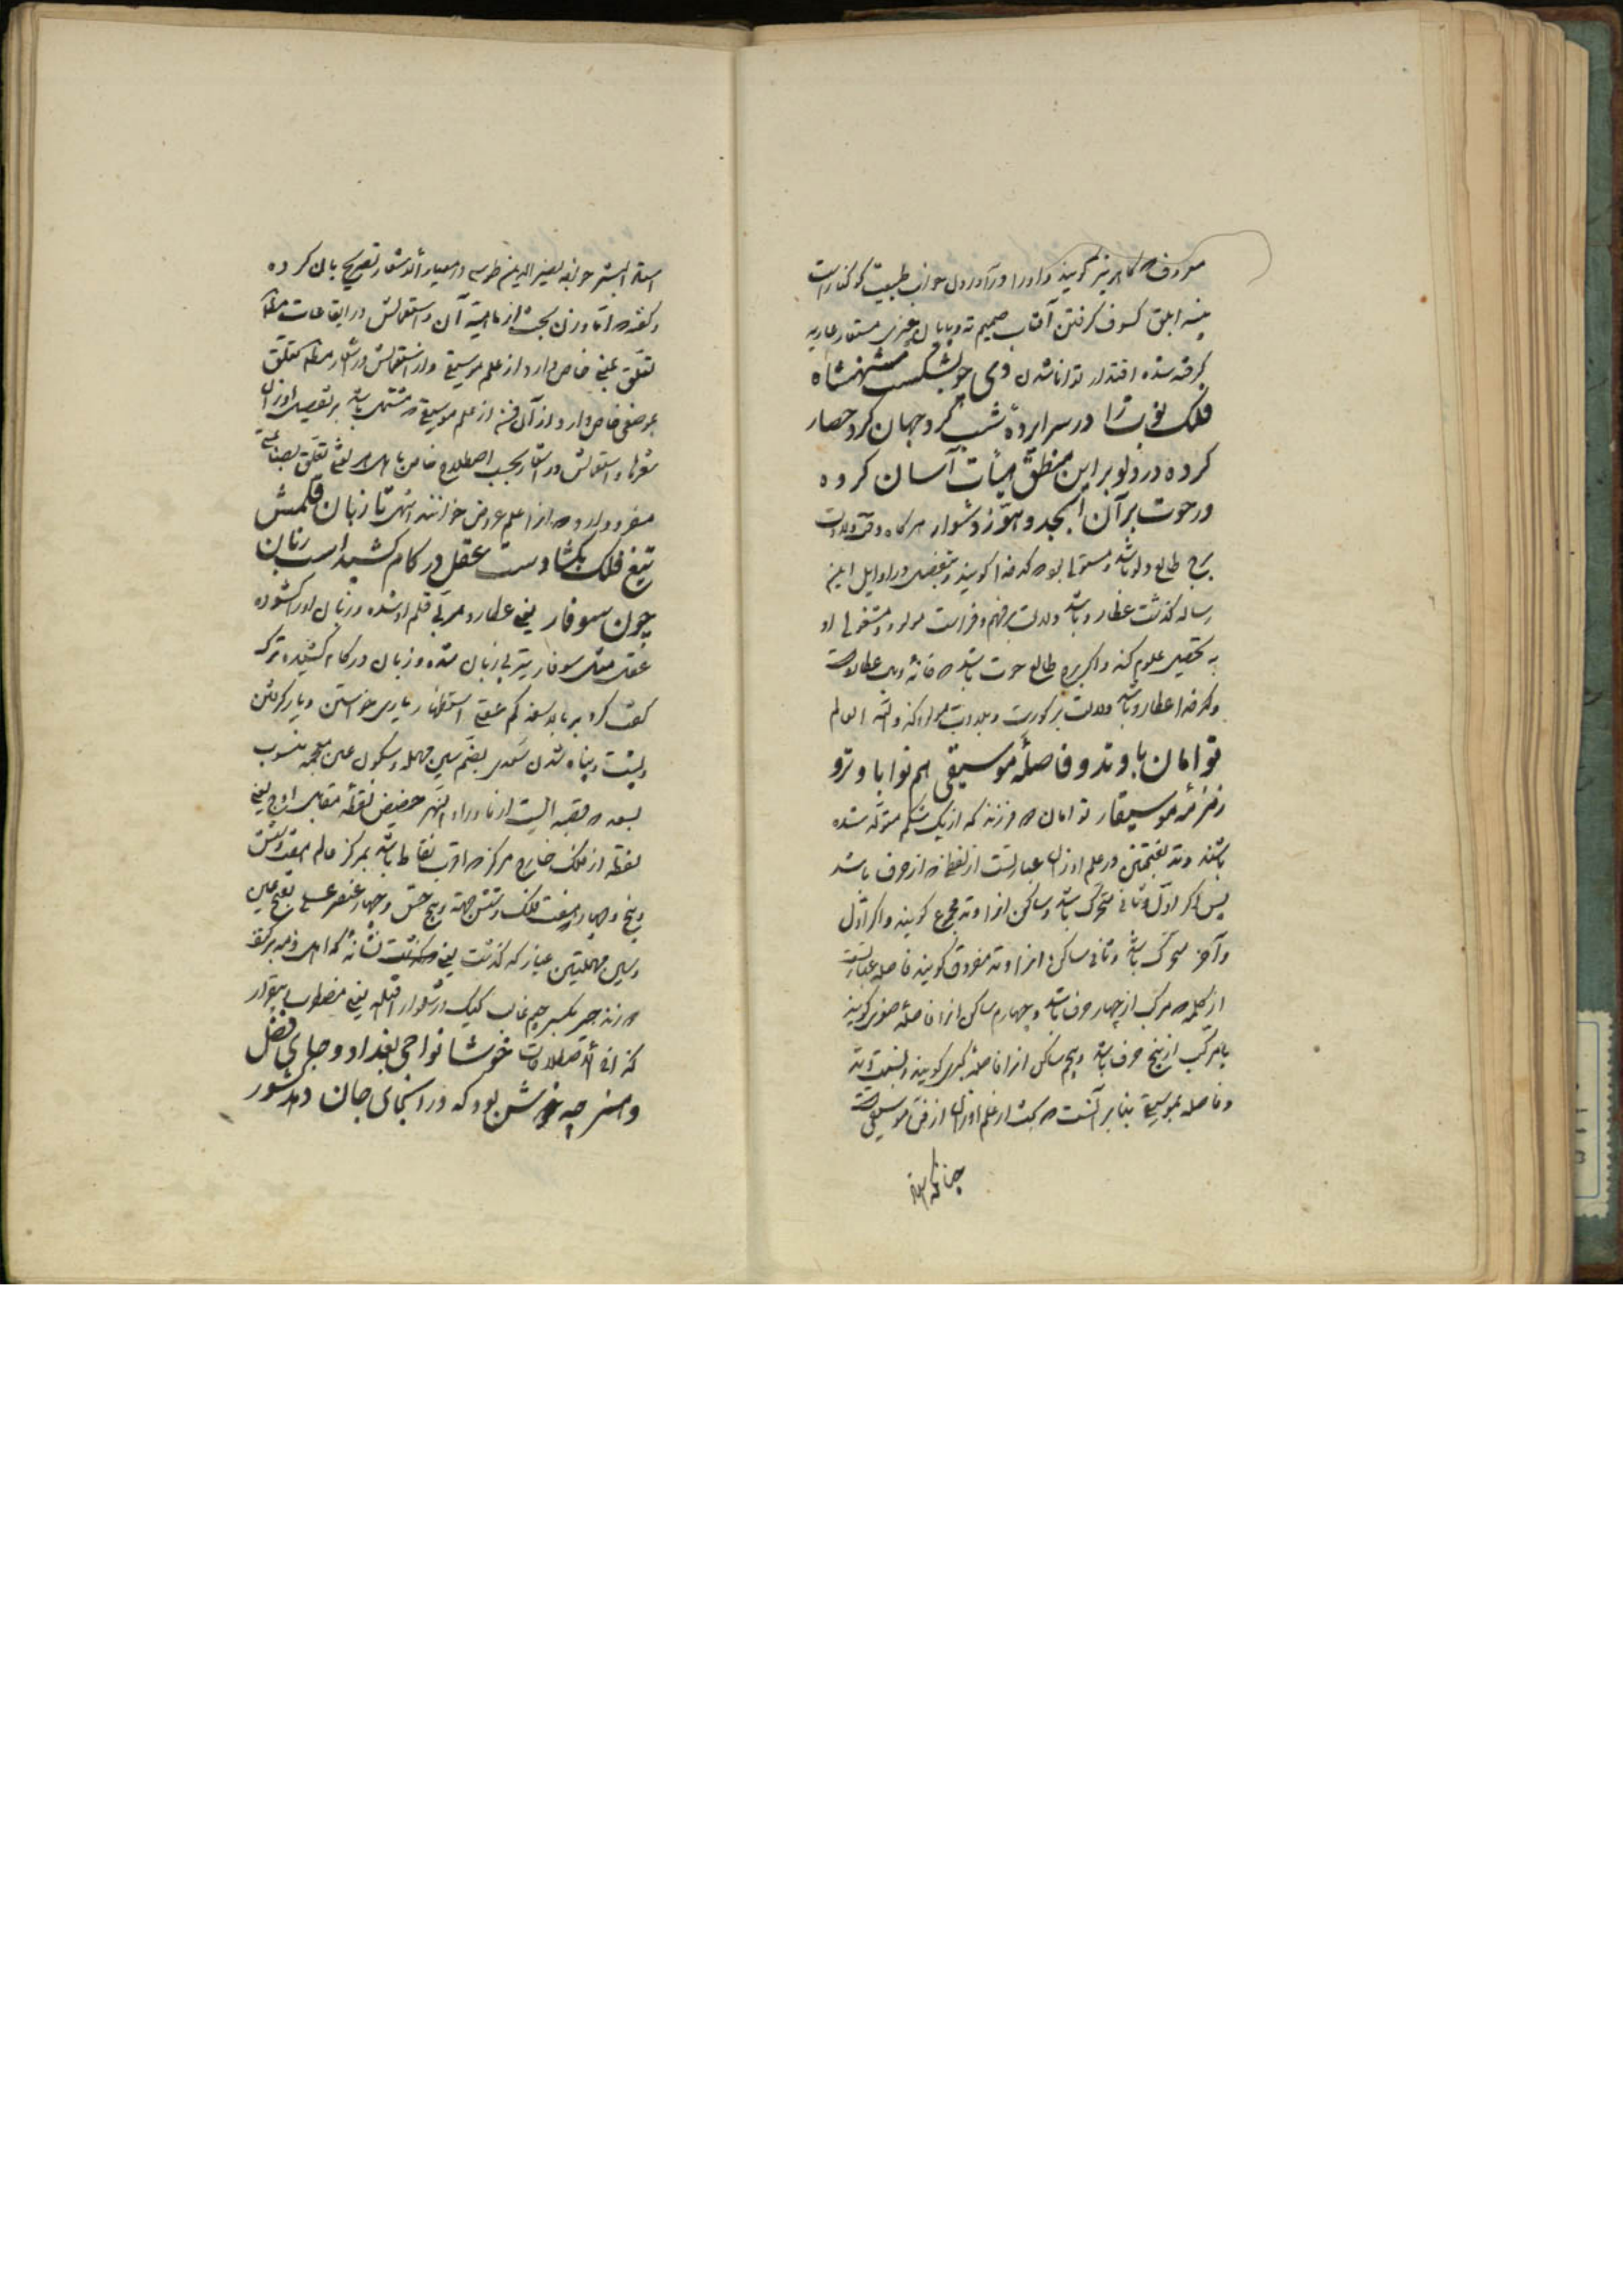 معروف که کاهربنر گویند و اورا در آوردن خواب طبیعت کوکنار است
پیسه ابلق کسوف گرفتن آفتاب صمیم ته و پایان چیزی مستعار عاریه
گرفته شده اقتدار توانا شدن دی چو بشکست شهنشاه
فلک نوبت را در سراپردهٔ شب گرد جهان کرد حصار
کرده در دلو بر این منطق هیأت آسان کرده
در حوت بر آن ابجد و هوّز دشوار هرگاه وقت ولادت
برج طالع دلو باشد و مستولی بود که کدخدا گویند و بتفصیل در اوایل این
رساله گذشت عطارد باشد دلالت بر فهم و فراست مولود و مشغولی او
به تحصیل علوم کند و اگر برج طالع حوت باشد که خانهٔ وبال عطارد است
و کدخدا عطارد باشد دلالت بر کورت و بلادت مولود کند والله اعلم
توامان با وتد و فاصلهٔ موسیقی هم نوا با وترو
زمزمهٔ موسیقار توامان دو فرزند که از یک شکم متولد شده
باشند وتد بفتحتین در علم اوزان عبارتست از لفظی که از سه حرف باشد
پس اگر اول و ثانی متحرک باشد و ساکن انرا وتد مجموع گویند و اگر اول
و آخر متحرک باشد و ثانی ساکن انرا وتد مفروق گویند فاصله عبارتست
از کلمه که مرکب از چهار حرف باشد و چهارم ساکن انرا فاصلهٔ صغری گویند
یا مرکب از پنج حرف باشد و پنجم ساکن انرا فاصلهٔ کبری گویند و نسبت وتد
و فاصله بموسیقی بنا بر آنست که بحث از علم اوزان از فن موسیقی است
چنانکه استاد
استاد البشر خواجه نصیر الدین طوسی در معیار الاشعار تصریح بان کرده
و گفته که اما وزن بحث از ماهیت آن و استعمالش در ایقاعات مثلا
تعلق بفنی خاص دارد از علم موسیقی و از استعمالش در شعر مثلا تعلق
بموضعی خاص دارد از آن فن از علم موسیقی که مشتمل باشد بر تفصیل اوزان
شعرها و استعمالش در اشعار بحسب اصطلاح خاص باهل هر لغتی تعلق بصناعتی
مفرد دارد که انرا علم عروض خوانند انتهی تا زبان قلمش
تیغ فلک بگشادست عقل در کام کشید است زبان
چون سوفار یعنی عطارد مربی قلم او شده و زبان او را گشوده
عقل مثل سوفار تیر بی زبان شده و زبان در کام کشیده ترک
گفت کرد بر باید سفه کم عقلی استظهار یاری خواستن و یار گرفتن
و پشت و پناه شدن سغدی بضم سین مهمله و سکون غین معجمه منسوب
بسغد که قصبه ایست از ماوراء النهر حضیض نقطهٔ مقابل اوج یعنی
نقطه از فلک خارج مرکز که اقرب نقاط باشد بمرکز عالم هفت و شش
و پنج و چهار هفت فلک و شش جهة و پنج حس و چهار عنصر عسس بفتح عین
و سین مهملتین عیار که گذشت یعنی گذشت نشانه که اهل ذمه بر کتف
دوزند جیر بکسر جیم غالب کیک در شلوار افتاده یعنی مضطرب و بیقرار
خوشا نواحی بغداد و جای فضل
و هنر چه خوش بود که در آنجای جان دهد شور